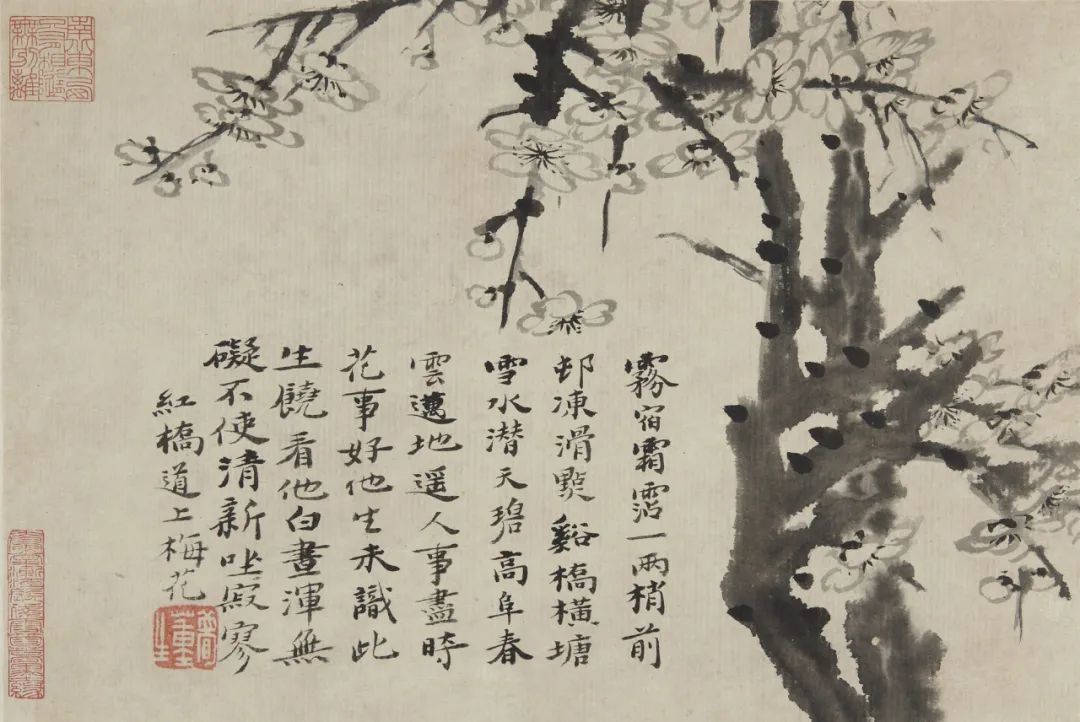 霧宿霜霑一兩梢前
邨凍滑點谿橋橫塘
雪水潛天碧高阜春
雲邁地遥人事盡時
花事好他生未識此
生饒看他白晝渾無
礙不使清新坐寂寥
紅橋道上梅花